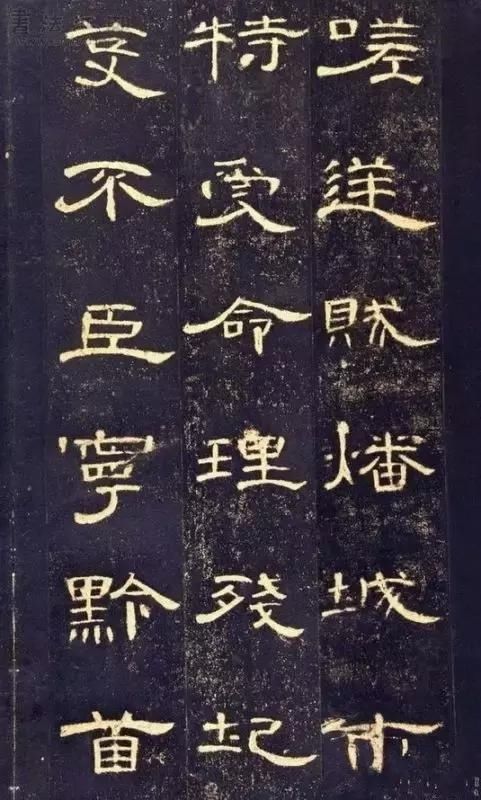 嗟逆賊燔城市
特受命理殘圮
芟不臣寧黔首
書法